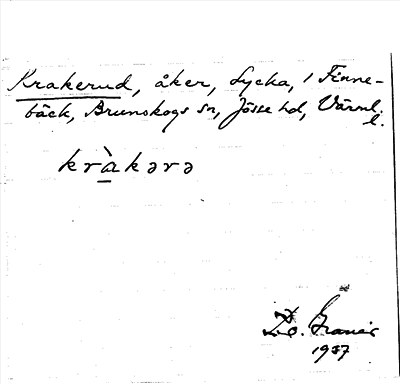 Krakerud, åker, Lycka, i Finne-
bäck, Brunskogs sn, Jösse hd, Värml.
l.
kràkərə
1937